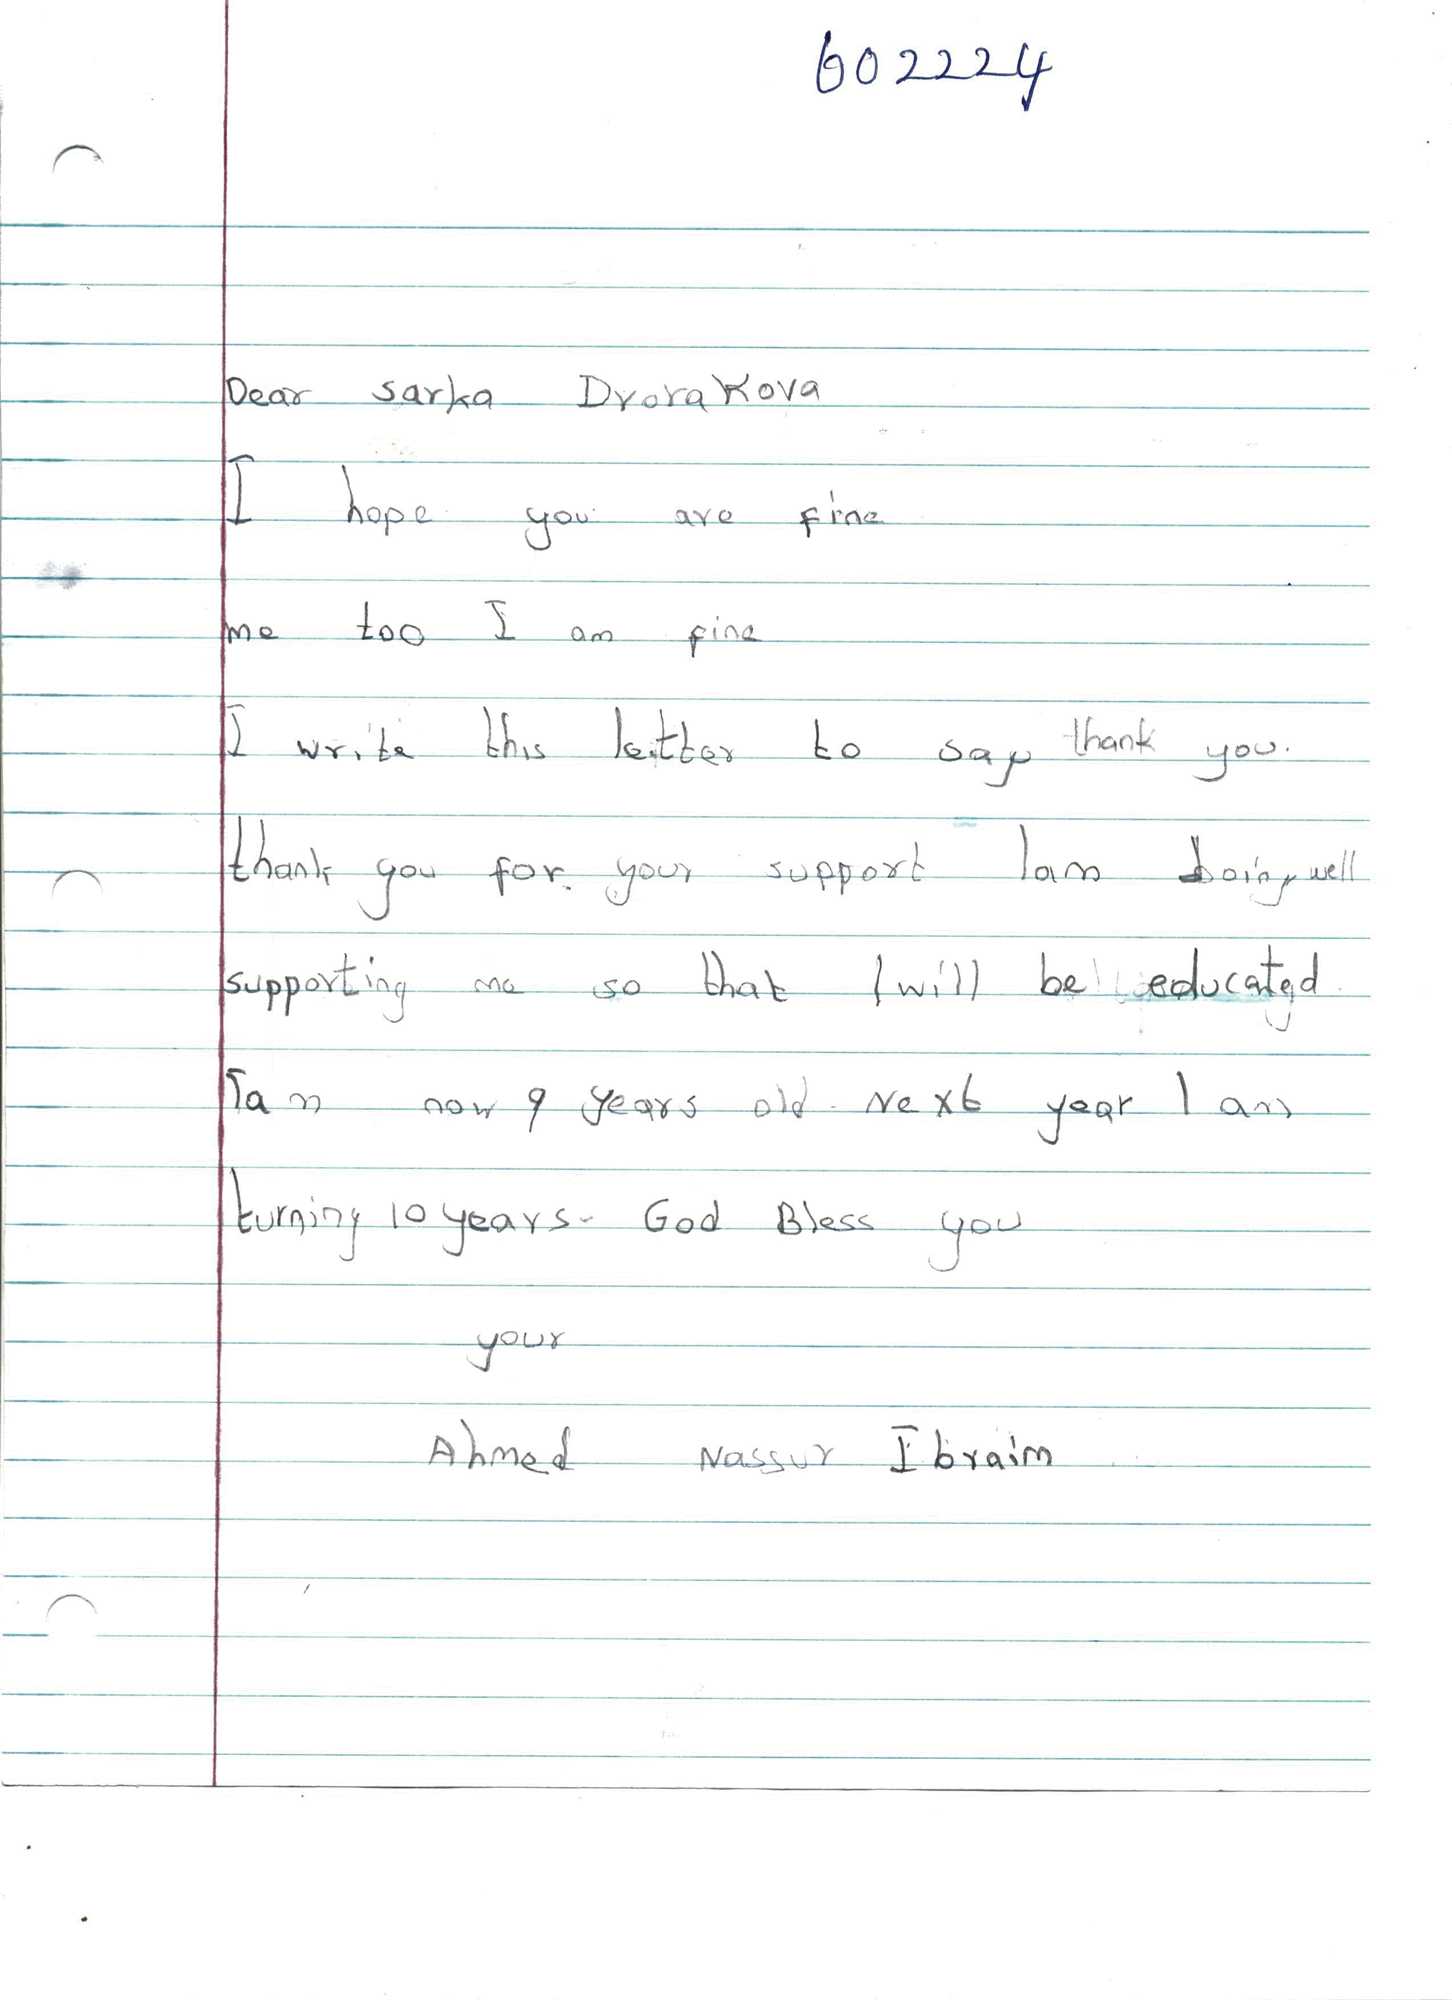 602224
Dear sarka Dvorakova
I hope you are fine
me too I am fine
I write this letter to say thank you.
thank you for your support Iam doing well
supporting me so that I will be educated
Iam now 9 years old. Next year I am
turning 10 years- God Bless you
your
Ahmed Nassur Ibraim